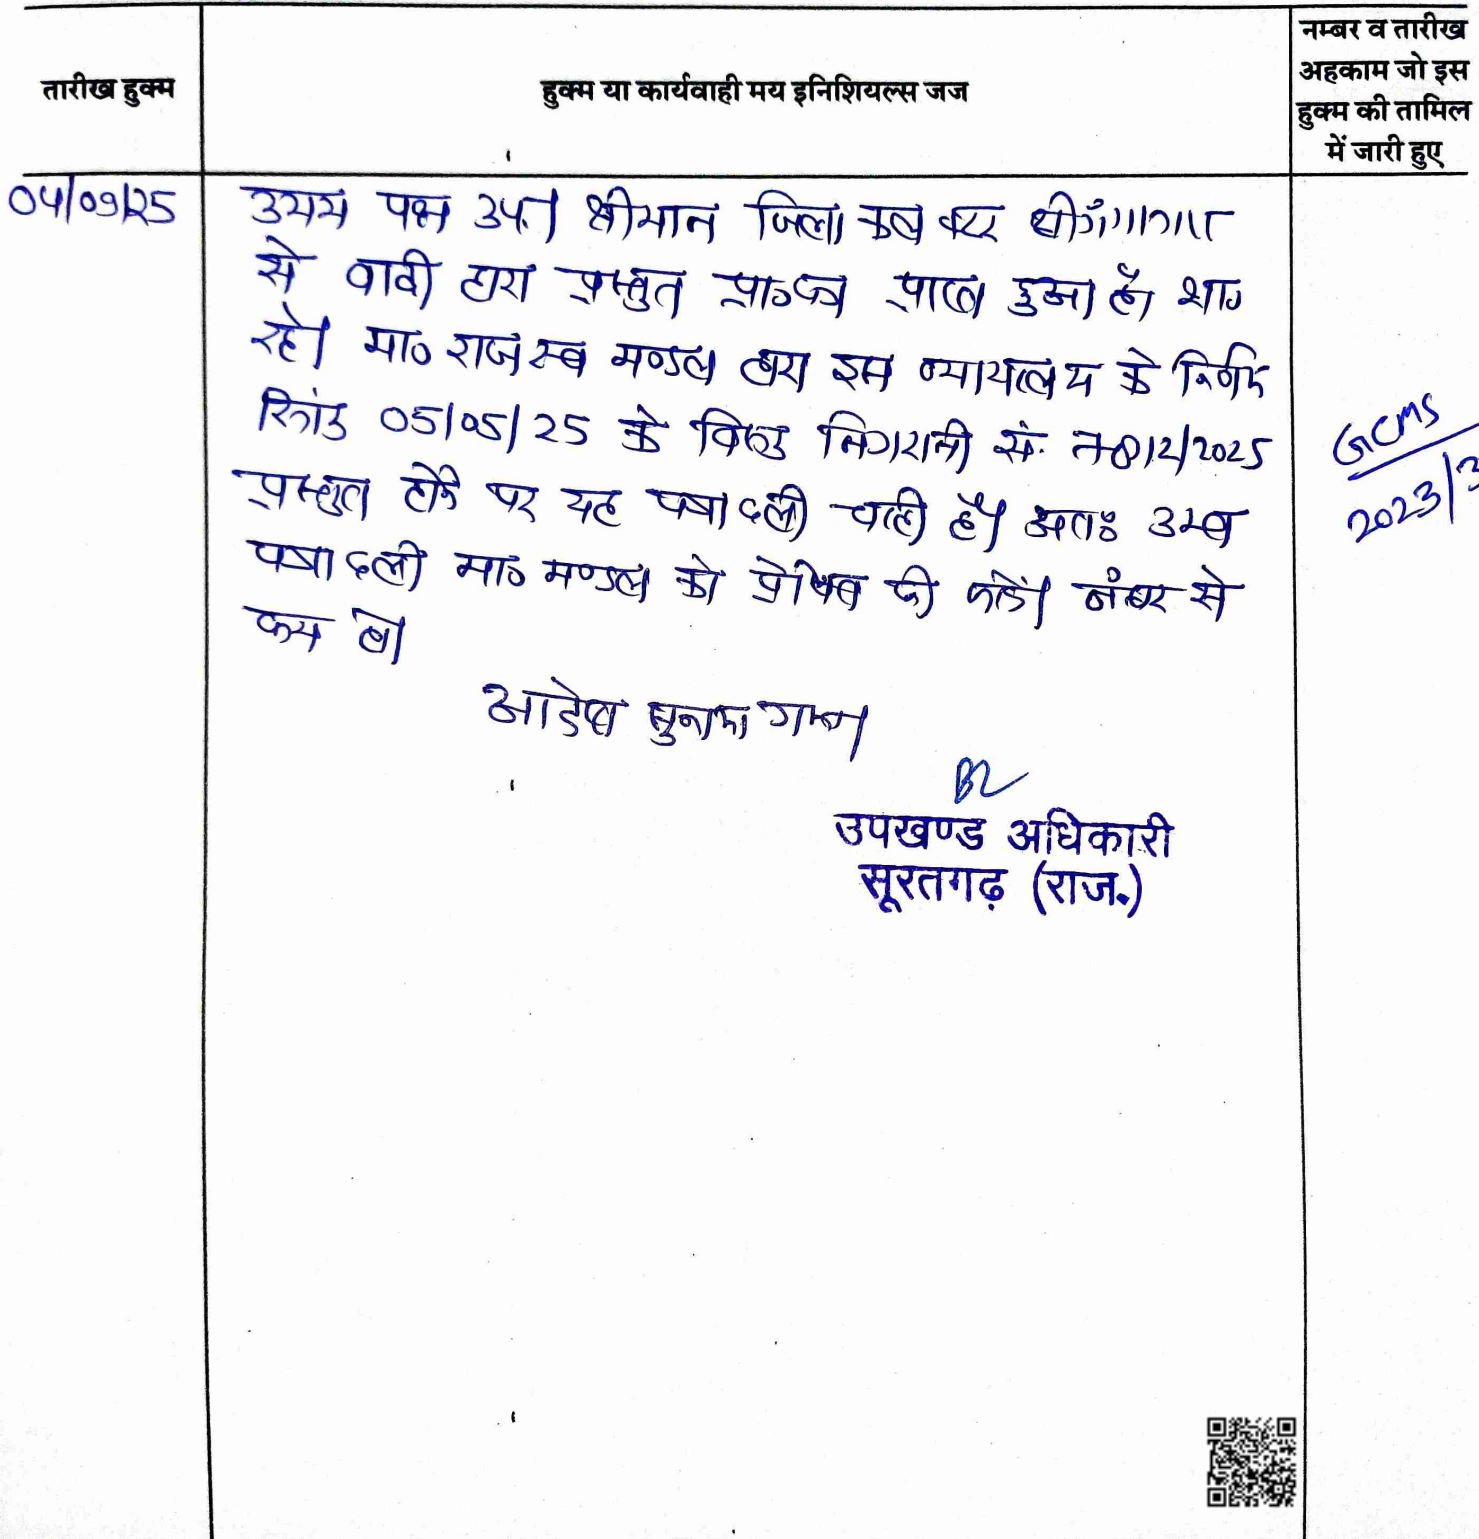 तारीख हुक्म
हुक्म या कार्यवाही मय इनिशियल्स जज
नम्बर व तारीख
अहकाम जो इस
हुक्म की तामिल
में जारी हुए
04/09/25
उभय पक्ष उप.। श्रीमान जिला कलक्टर श्रीगंगानगर
से वादी द्वारा प्रस्तुत प्रा०पत्र प्राप्त हुआ है। शा०
रहे। मा० राजस्व मण्डल द्वारा इस न्यायालय के निर्णय
दिनांक 05/05/25 के विरुद्ध निगरानी सं. /2025
प्रस्तुत होने पर यह पत्रावली चाही है। अतः उक्त
पत्रावली मा० मण्डल को प्रेषित की जावे। नंबर से
कम हो।
आदेश सुनाया गया।
उपखण्ड अधिकारी
सूरतगढ़ (राज.)
GCMS
2023/3